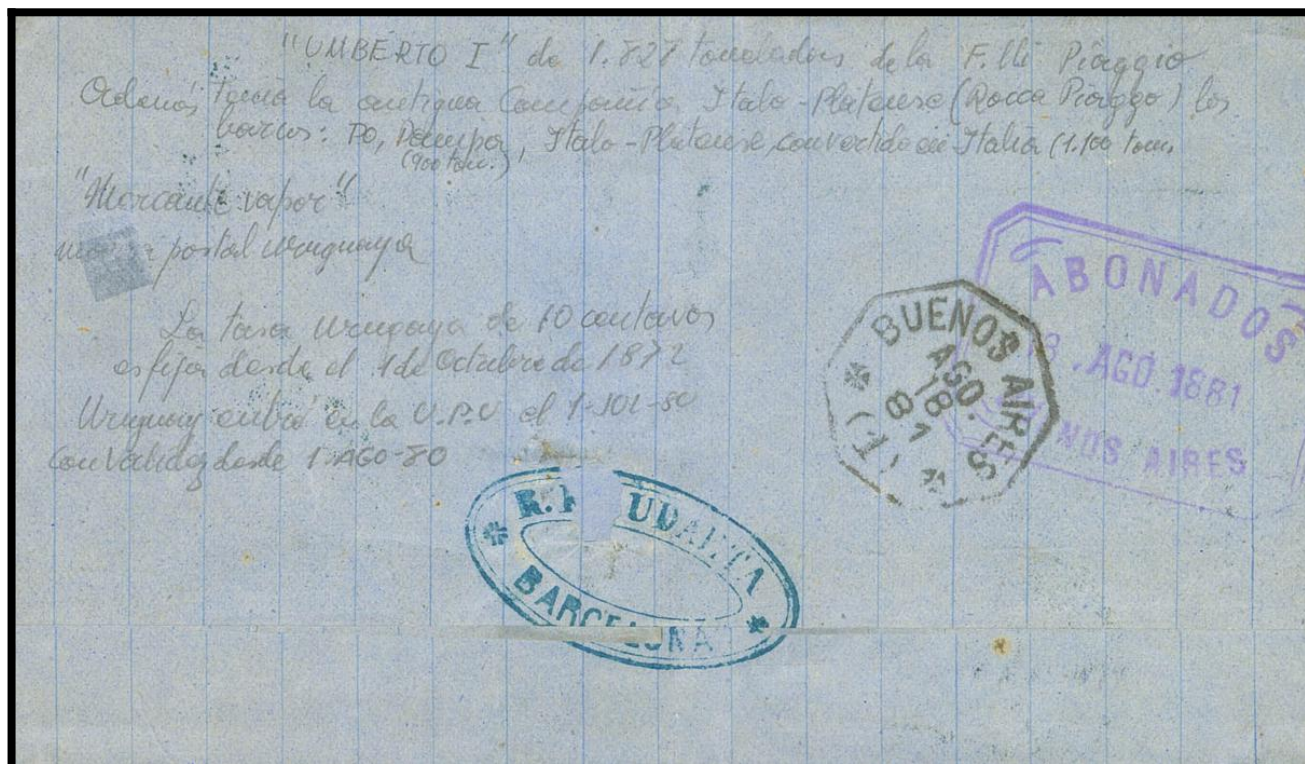 "UMBERTO I" de 1.827 toneladas de la F.lli Piaggio
Además tenía la antigua Compañía Italo-Platense (Rocca Piaggo) los
barcos: Po, Pampa, Italo-Platense, convertido en Italia (1.100 ton.
(900 ton.)
"Mercante vapor"
postal uruguaya
La tasa Uruguaya de 10 centavos
es fija desde el 1 de Octubre de 1872
Uruguay entró en la U.P.U el 1-JUL-80
con validez desde 1-AGO-80
ABONADOS
18.AGO.1881
NOS AIRES
BUENOS AIRES
AGO.
18
81
(1)
R. UDAETA
BARCELONA